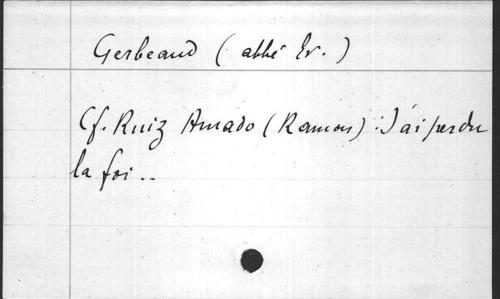 Gerbeaud (abbé Er.)
Cf. Ruiz Amado (Ramon) : J'ai perdu
la foi ..